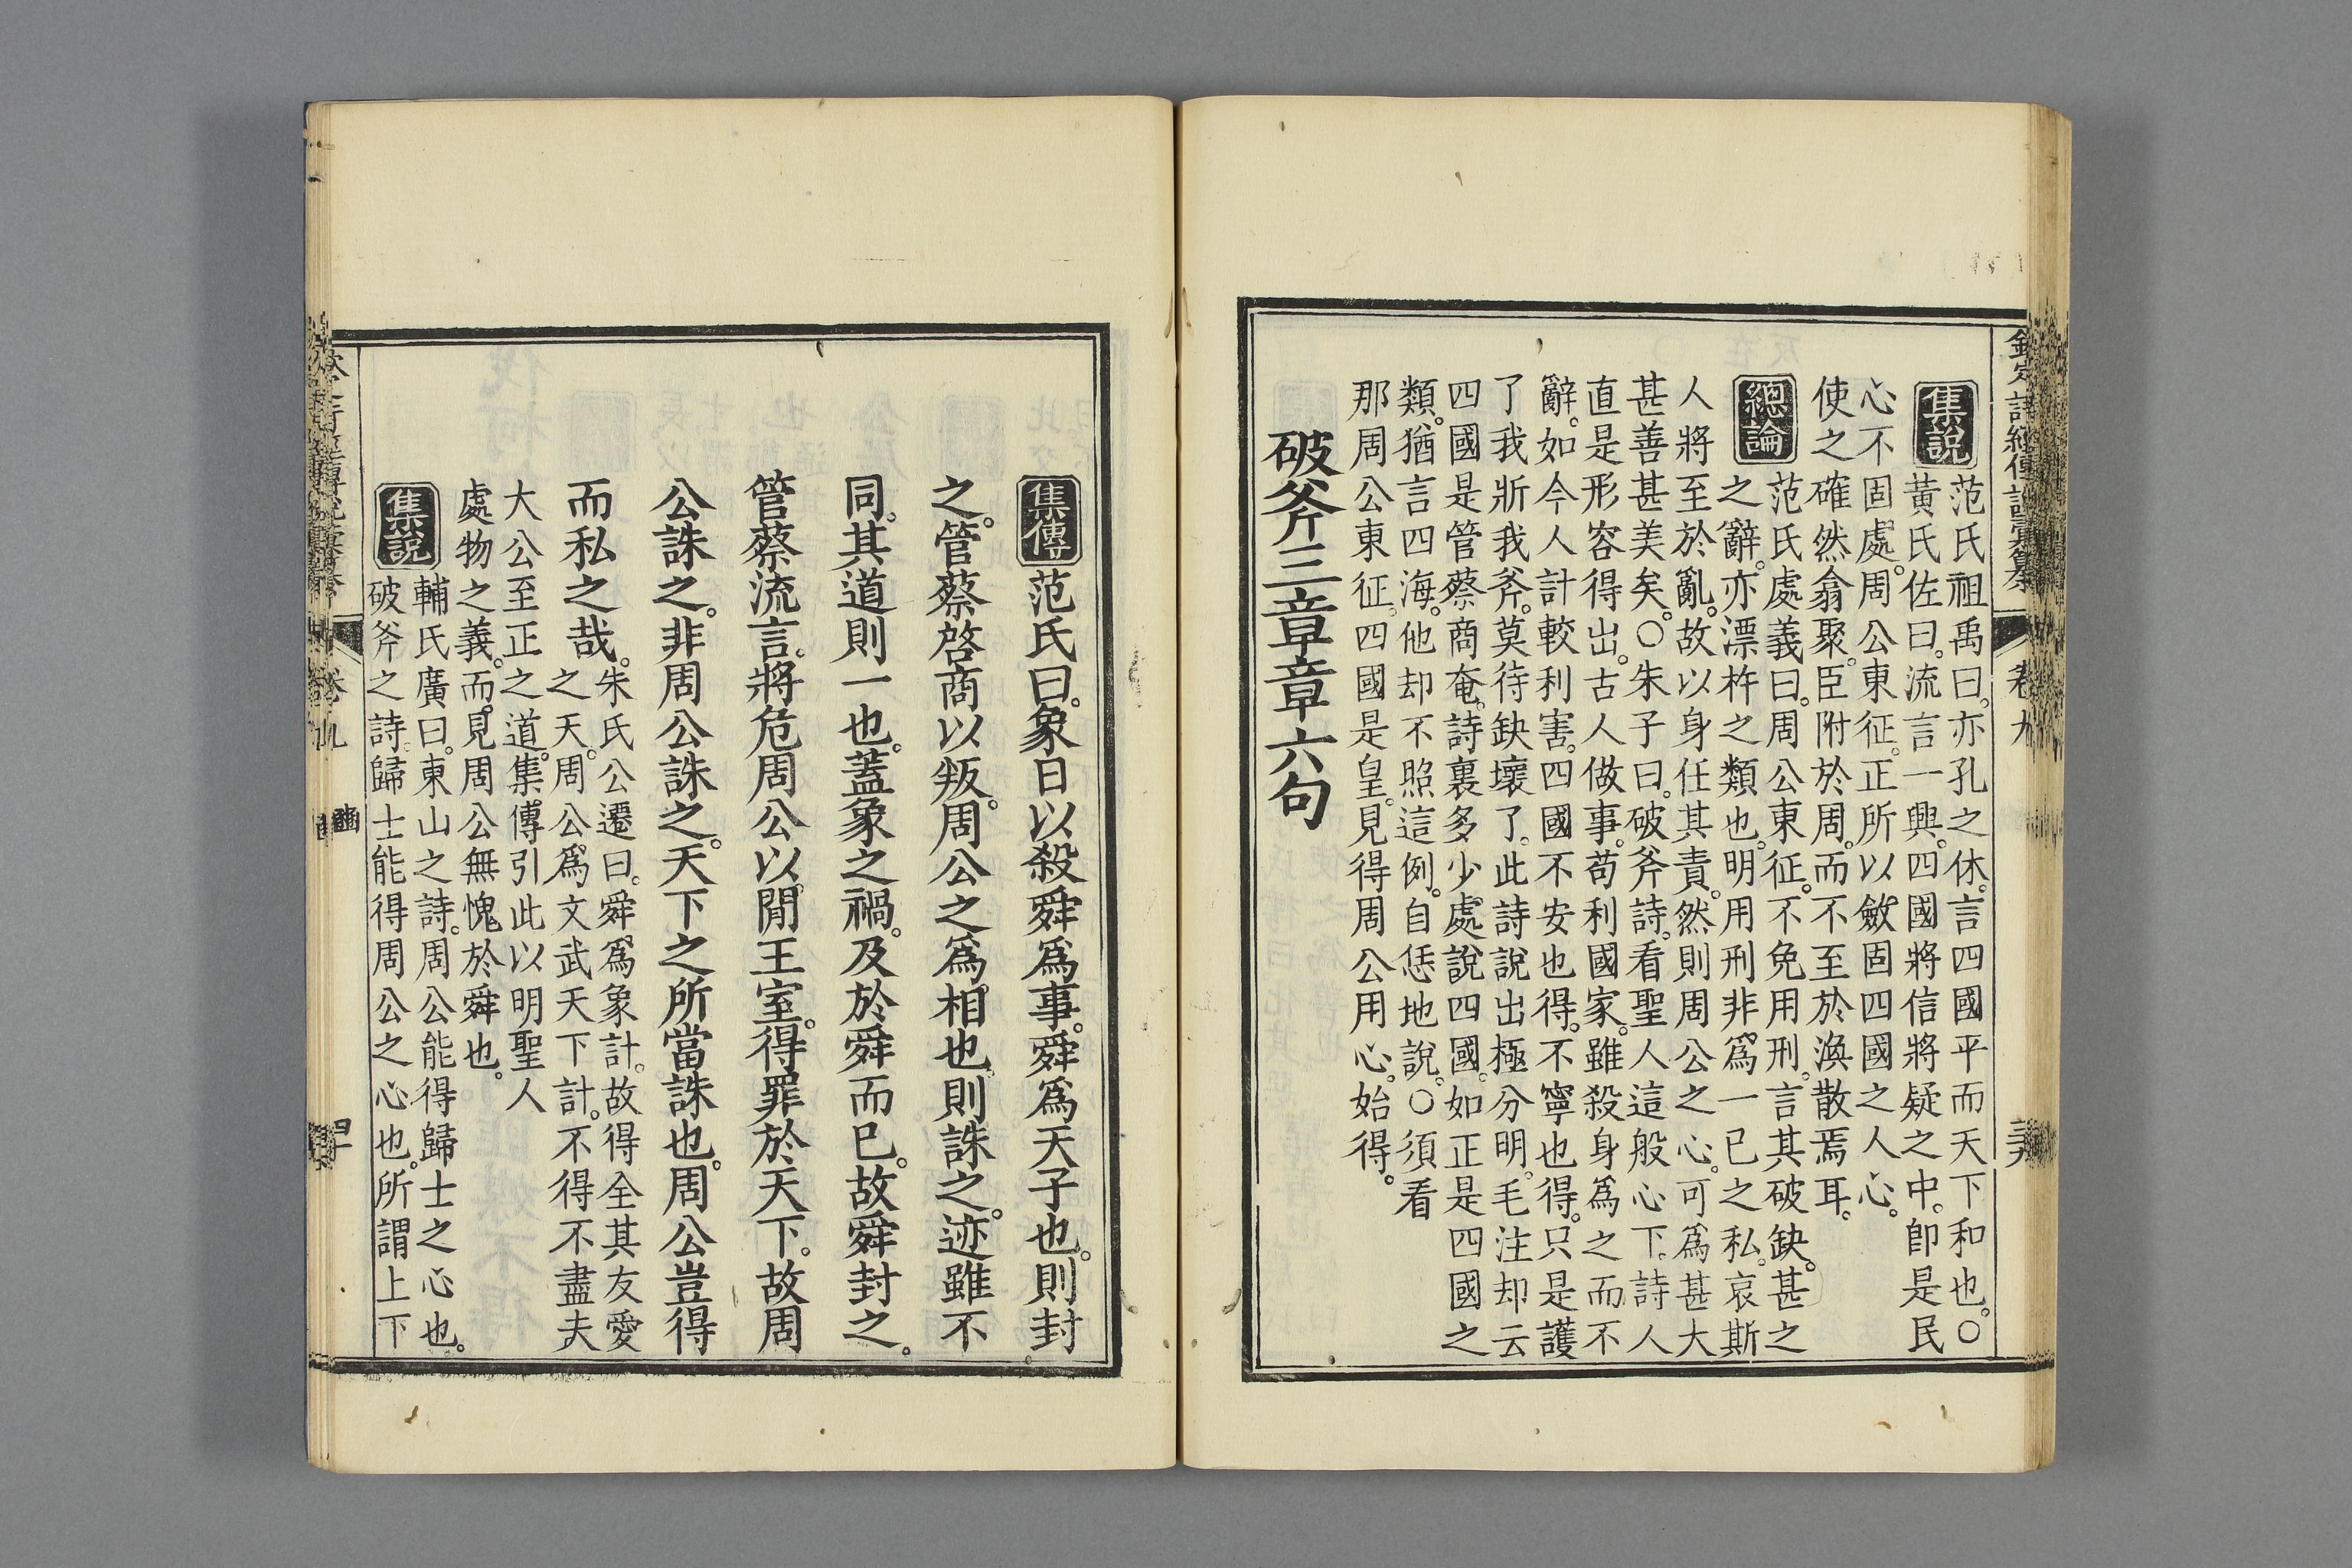 集說
范氏祖禹曰。亦孔之休。言四國平而天下和也。○
黃氏佐曰。流言一興。四國將信將疑之中。卽是民
心不固處。周公東征。正所以斂固四國之人心。
使之確然翕聚。臣附於周。而不至於渙散焉耳。
總論
范氏處義曰。周公東征。不免用刑。言其破缺。甚之
之辭。亦漂杵之類也。明用刑非爲一已之私。哀斯
人將至於亂。故以身任其責。然則周公之心。可爲甚大
甚善甚美矣。○朱子曰。破斧詩。看聖人這般心下。詩人
直是形容得出。古人做事。苟利國家。雖殺身爲之而不
辭。如今人計較利害。四國不安也得。不寧也得。只是護
了我斨我斧。莫待缺壞了。此詩說出極分明。毛注却云
四國是管蔡商奄。詩裏多少處說四國。如正是四國之
類。猶言四海。他却不照這例。自恁地說。○須看
那周公東征。四國是皇。見得周公用心。始得。
破斧三章章六句
集傳
范氏曰。象日以殺舜爲事。舜爲天子也。則封
之。管蔡啓商以叛。周公之爲相也。則誅之。迹雖不
同。其道則一也。蓋象之禍。及於舜而已。故舜封之。
管蔡流言。將危周公。以閒王室。得罪於天下。故周
公誅之。非周公誅之。天下之所當誅也。周公豈得
而私之哉。
朱氏公遷曰。舜爲象計。故得全其友愛
之天。周公爲文武天下計。不得不盡夫
大公至正之道。集傳引此以明聖人
處物之義。而見周公無愧於舜也。
集說
輔氏廣曰。東山之詩。周公能得歸士之心也。
破斧之詩。歸士能得周公之心也。所謂上下
卷九